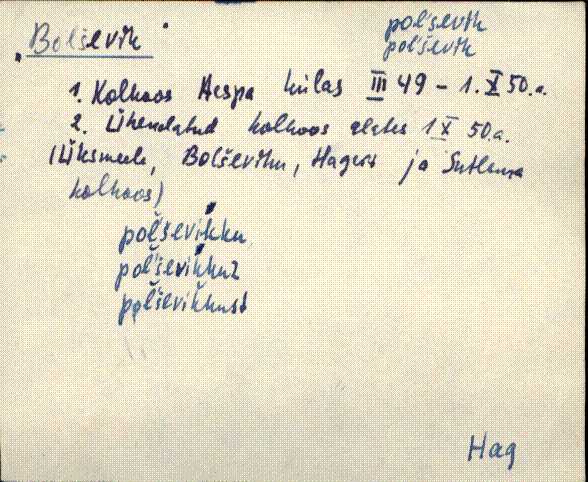 "Bolševik"
pol'ševik
pol'ševik
1. Kolhoos Aespa külas III 49 – 1. X 50.a.
2. Ühendatud kolhoos alates 1 X 50.a.
(Üksmeele, Bolševiku, Hageri ja Sutlema
kolhoos)
pol'ševikku
pol'ševikkuz
pol'ševikkust
Hag